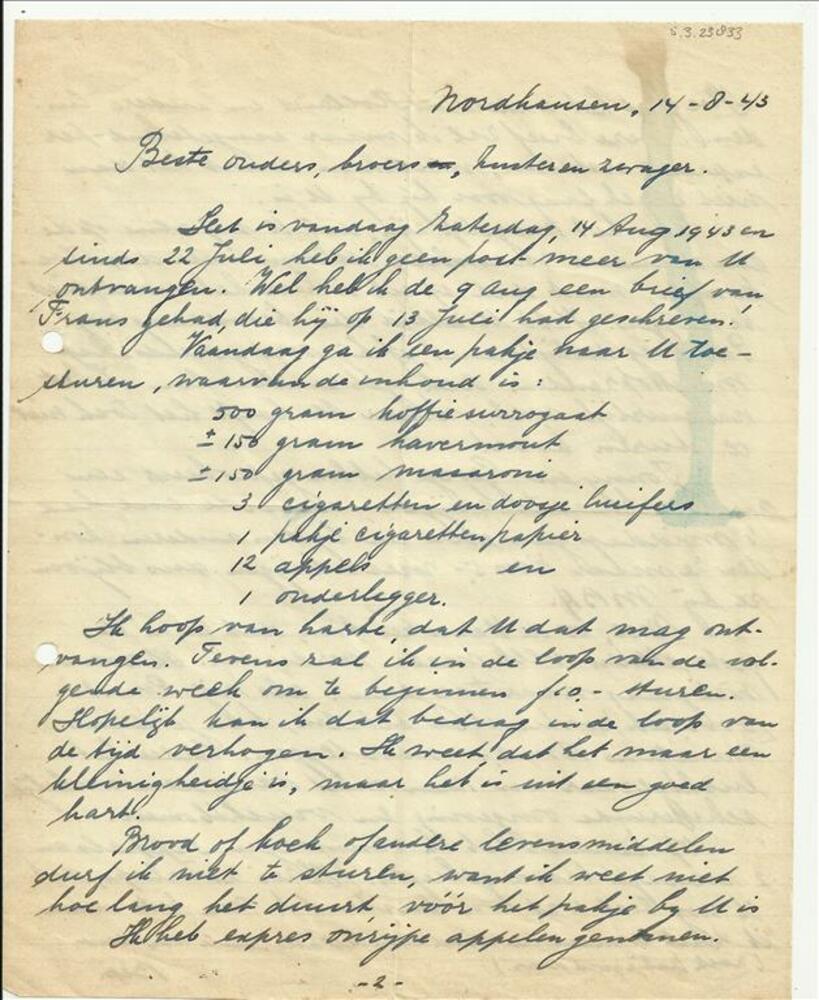 S.3.23833
Nordhausen, 14-8-43
Beste ouders, broers, zuster en zwager.
Het is vandaag Zaterdag, 14 Aug 1943 en
sinds 22 Juli heb ik geen post meer van U
ontvangen. Wel heb ik de 9 Aug een brief van
Frans gehad, die hij op 13 Juli had geschreven.
Vaandaag ga ik een pakje naar U toe-
sturen, waarvan de inhoud is:
500 gram koffiesurrogaat
± 150 gram havermout
± 150 gram macaroni
3 cigaretten en doosje lucifers
1 pakje cigarettenpapier
12 appels en
1 onderlegger.
Ik hoop van harte, dat U dat mag ont-
vangen. Tevens zal ik in de loop van de vol-
gende week om te beginnen f10,- sturen.
Hopelijk kan ik dat bedrag in de loop van
de tijd verhogen. Ik weet, dat het maar een
kleinigheidje is, maar het is uit een goed
hart.
Brood of koek of andere levensmiddelen
durf ik niet te sturen, want ik weet niet
hoe lang het duurt vóór het pakje by U is
Ik heb expres onrijpe appelen genomen.
-2-